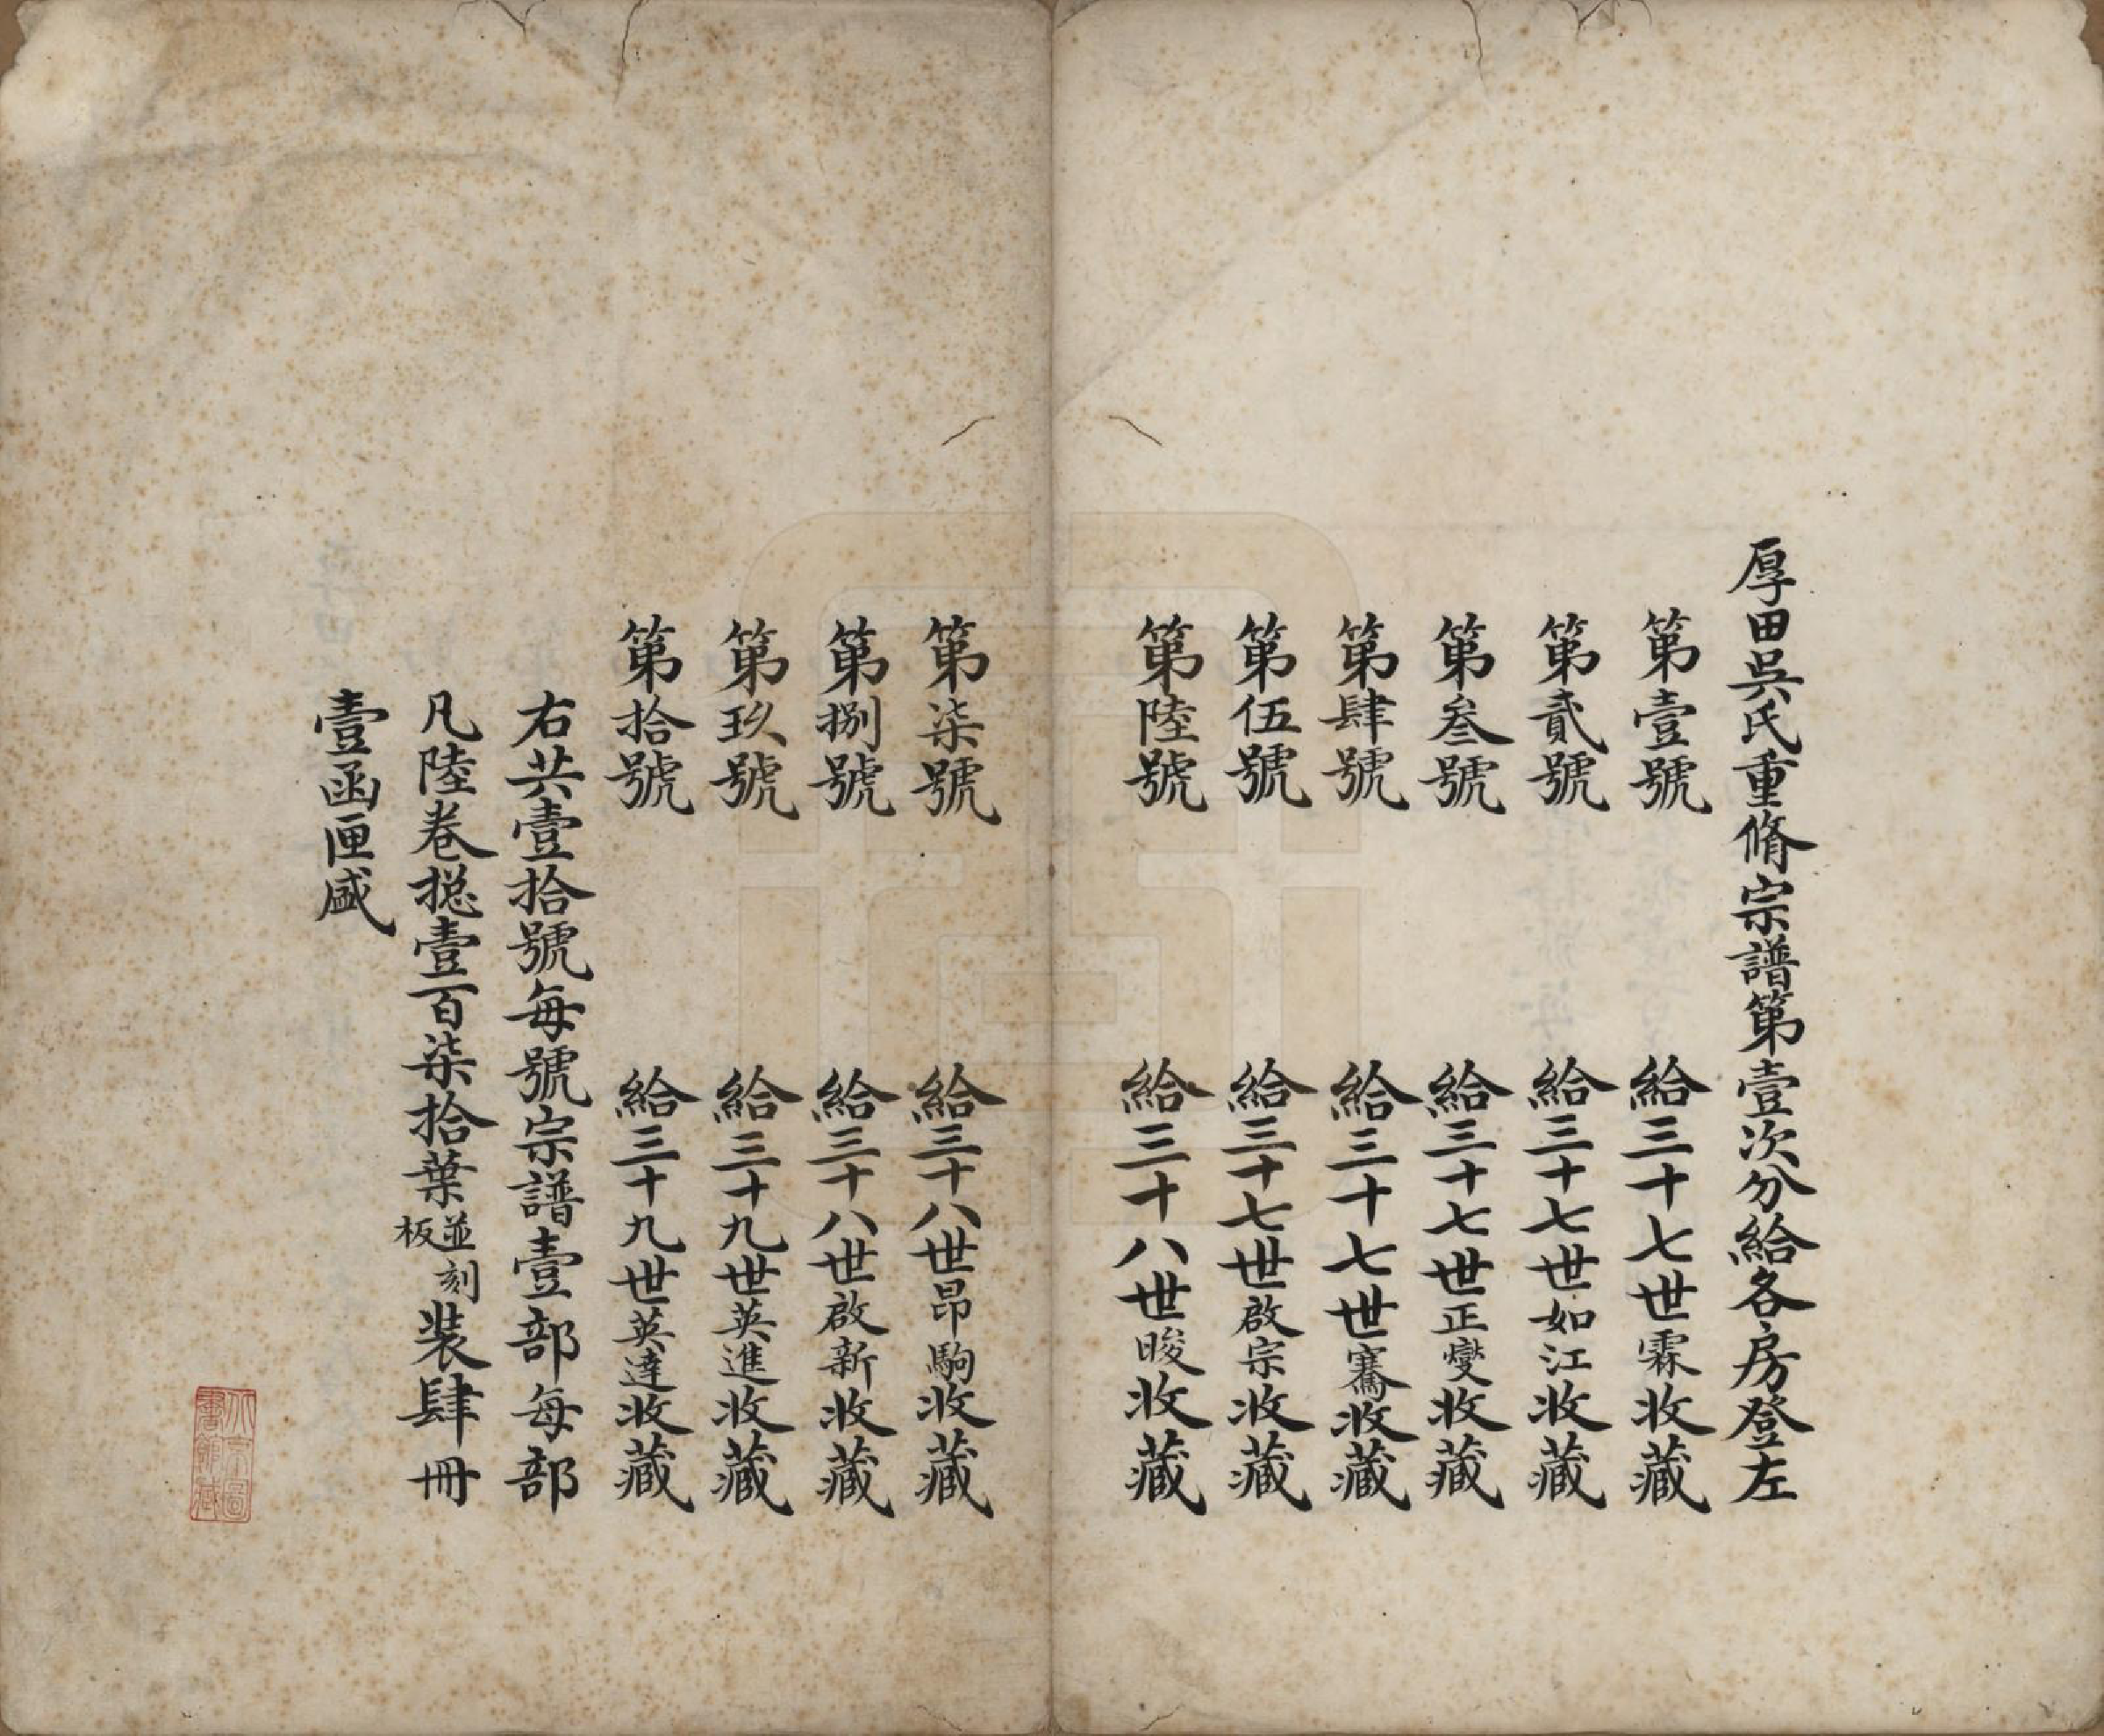 厚田吳氏重脩宗譜第壹次分給各房登左
第壹號 給三十七世霖收藏
第貳號 給三十七世如江收藏
第叁號 給三十七世正燮收藏
第肆號 給三十七世騫收藏
第伍號 給三十七世啟宗收藏
第陸號 給三十八世晙收藏
第柒號 給三十八世昂駒收藏
第捌號 給三十八世啟新收藏
第玖號 給三十九世英進收藏
第拾號 給三十九世英達收藏
右共壹拾號每號宗譜壹部每部
凡陸卷揔壹百柒拾葉並刻板裝肆冊
壹函匣盛